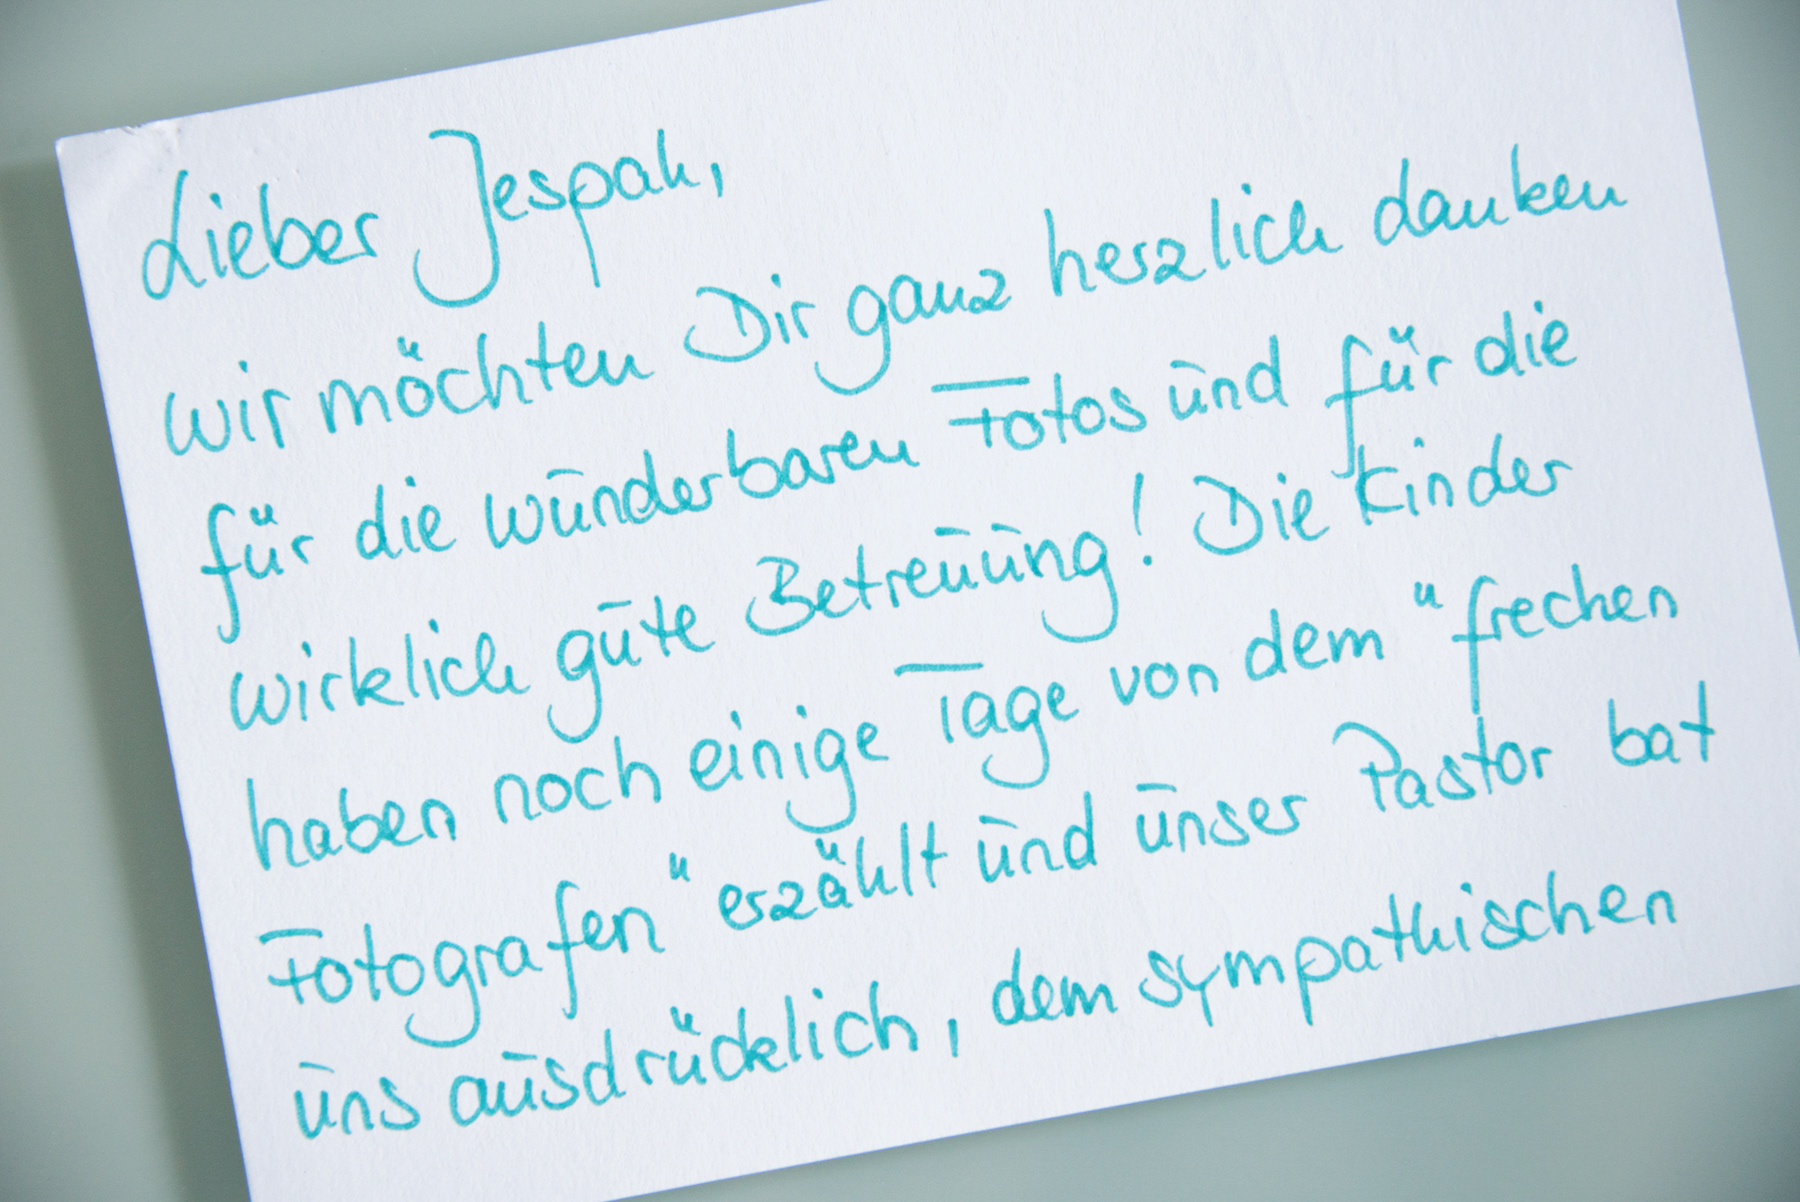 Lieber Jespah,
wir möchten Dir ganz herzlich danken
für die wunderbaren Fotos und für die
wirklich gute Betreuung! Die Kinder
haben noch einige Tage von dem "frechen
Fotografen" erzählt und unser Pastor bat
uns ausdrücklich, dem sympathischen